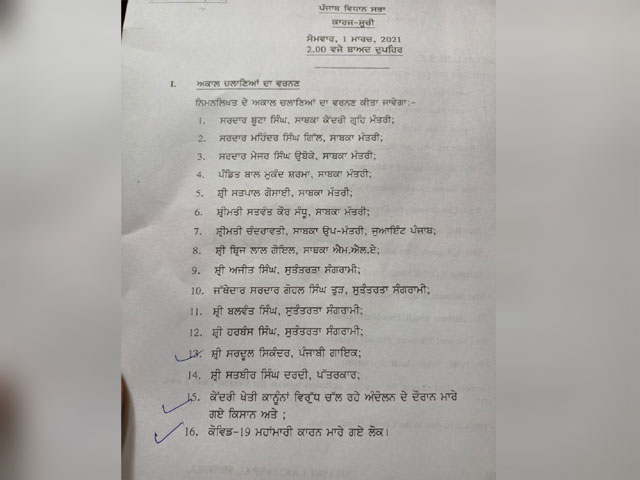 ਪੰਜਾਬ ਵਿਧਾਨ ਸਭਾ
ਕਾਰਜ-ਸੂਚੀ
ਸੋਮਵਾਰ, 1 ਮਾਰਚ, 2021
2.00 ਵਜੇ ਬਾਅਦ ਦੁਪਹਿਰ
I. ਅਕਾਲ ਚਲਾਣਿਆਂ ਦਾ ਵਰਨਣ
ਨਿਮਨਲਿਖਤ ਦੇ ਅਕਾਲ ਚਲਾਣਿਆਂ ਦਾ ਵਰਨਣ ਕੀਤਾ ਜਾਵੇਗਾ:-
1. ਸਰਦਾਰ ਬੂਟਾ ਸਿੰਘ, ਸਾਬਕਾ ਕੇਂਦਰੀ ਗ੍ਰਹਿ ਮੰਤਰੀ;
2. ਸਰਦਾਰ ਮਹਿੰਦਰ ਸਿੰਘ ਗਿੱਲ, ਸਾਬਕਾ ਮੰਤਰੀ;
3. ਸਰਦਾਰ ਮੇਜਰ ਸਿੰਘ ਉਬੋਕੇ, ਸਾਬਕਾ ਮੰਤਰੀ;
4. ਪੰਡਿਤ ਬਾਲ ਮੁਕੰਦ ਸ਼ਰਮਾ, ਸਾਬਕਾ ਮੰਤਰੀ;
5. ਸ਼੍ਰੀ ਸਤਪਾਲ ਗੋਸਾਈ, ਸਾਬਕਾ ਮੰਤਰੀ;
6. ਸ਼੍ਰੀਮਤੀ ਸਤਵੰਤ ਕੌਰ ਸੰਧੂ, ਸਾਬਕਾ ਮੰਤਰੀ;
7. ਸ਼੍ਰੀਮਤੀ ਚੰਦਰਾਵਤੀ, ਸਾਬਕਾ ਉਪ-ਮੰਤਰੀ, ਜੁਆਇੰਟ ਪੰਜਾਬ;
8. ਸ਼੍ਰੀ ਬ੍ਰਿਜ ਲਾਲ ਗੋਇਲ, ਸਾਬਕਾ ਐਮ.ਐਲ.ਏ;
9. ਸ਼੍ਰੀ ਅਜੀਤ ਸਿੰਘ, ਸੁਤੰਤਰਤਾ ਸੰਗਰਾਮੀ;
10. ਜੱਥੇਦਾਰ ਸਰਦਾਰ ਗੋਹਲ ਸਿੰਘ ਤੁੜ, ਸੁਤੰਤਰਤਾ ਸੰਗਰਾਮੀ;
11. ਸ਼੍ਰੀ ਬਲਵੰਤ ਸਿੰਘ, ਸੁਤੰਤਰਤਾ ਸੰਗਰਾਮੀ;
12. ਸ਼੍ਰੀ ਹਰਬੰਸ ਸਿੰਘ, ਸੁਤੰਤਰਤਾ ਸੰਗਰਾਮੀ;
13. ਸ਼੍ਰੀ ਸਰਦੂਲ ਸਿਕੰਦਰ, ਪੰਜਾਬੀ ਗਾਇਕ;
14. ਸ਼੍ਰੀ ਸਤਬੀਰ ਸਿੰਘ ਦਰਦੀ, ਪੱਤਰਕਾਰ;
15. ਕੇਂਦਰੀ ਖੇਤੀ ਕਾਨੂੰਨਾਂ ਵਿਰੁੱਧ ਚੱਲ ਰਹੇ ਅੰਦੋਲਨ ਦੇ ਦੌਰਾਨ ਮਾਰੇ
ਗਏ ਕਿਸਾਨ ਅਤੇ ;
16. ਕੋਵਿਡ-19 ਮਹਾਂਮਾਰੀ ਕਾਰਨ ਮਾਰੇ ਗਏ ਲੋਕ।